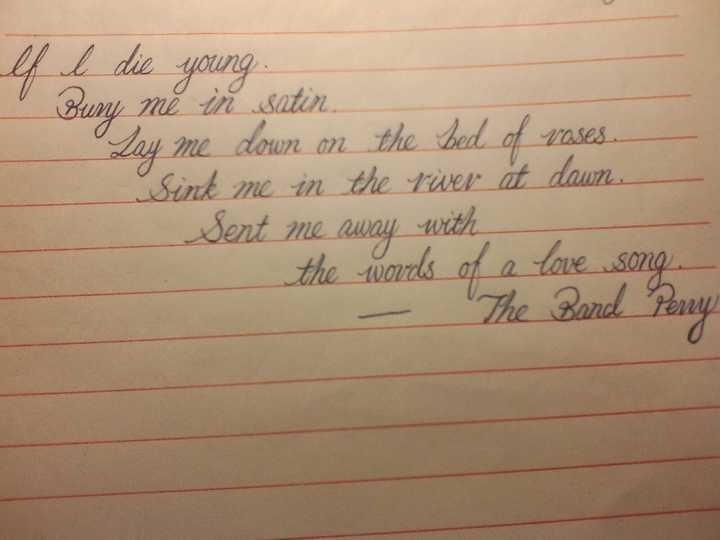 If I die young.
Bury me in satin.
Lay me down on the bed of roses.
Sink me in the river at dawn.
Sent me away with
the words of a love song.
— The Band Perry